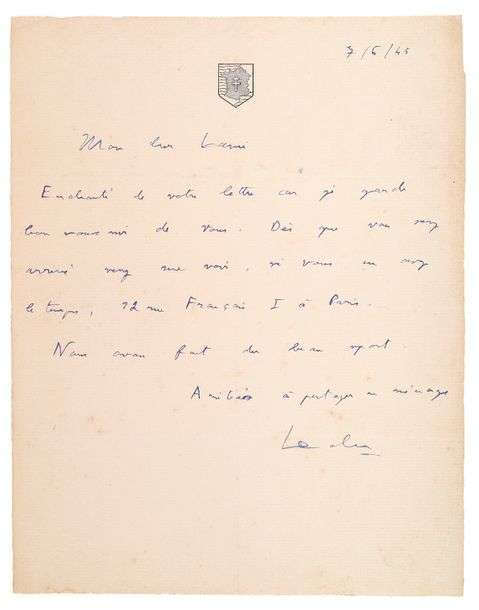 7/6/45
Mon cher
Enchanté de votre lettre car je garde
bon souvenir de vous. Dès que vous serez
arrivé venez me voir, si vous en avez
le temps, 12 rue François I à Paris.
Nous avons fait du beau sport.
Amitiés à partager en ménage